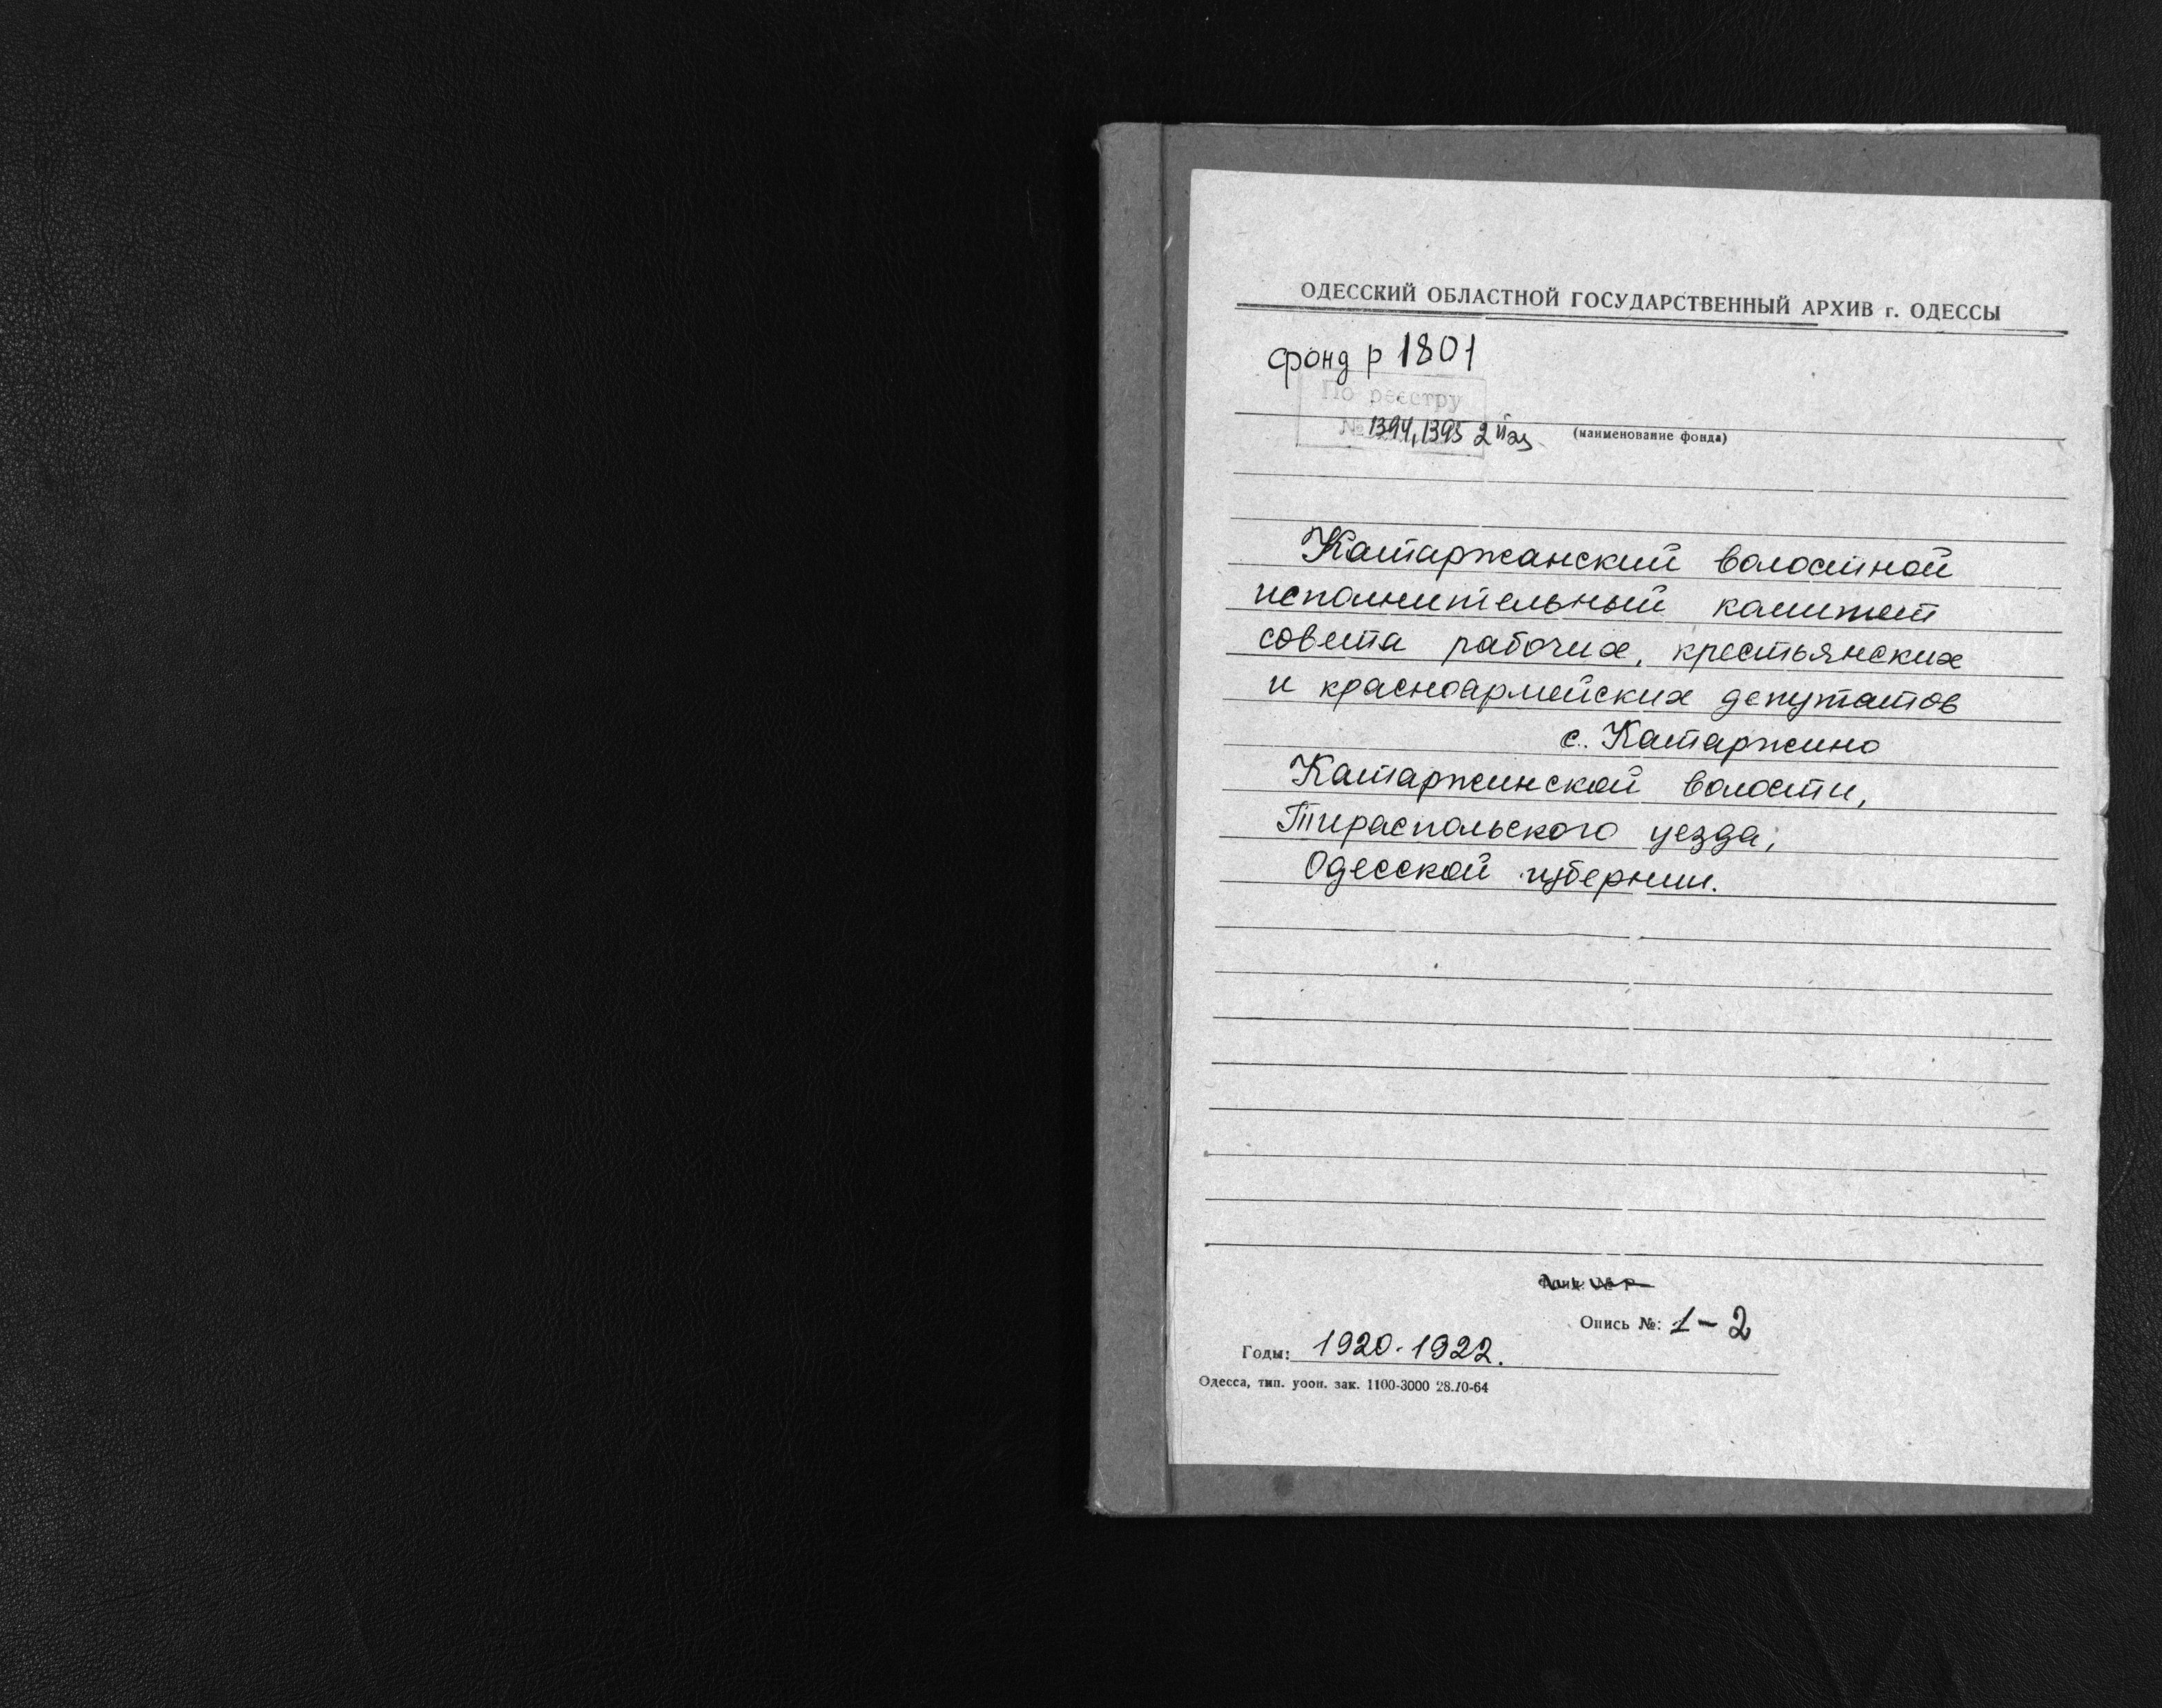 ОДЕССКИЙ ОБЛАСТНОЙ ГОСУДАРСТВЕННЫЙ АРХИВ г. ОДЕССЫ
фонд р 1801
По реестру
№ 1394, 1395 2й эз
(наименование фонда)
Катаржанский волостной
исполнительный комитет
совета рабочих, крестьянских
и красноармейских депутатов
с. Катаржино
Катаржинской волости,
Тираспольского уезда,
Одесской губернии.
Фонд № Р
Опись №: 1-2
Годы: 1920-1922.
Одесса, тип. уоон. зак. 1100-3000 28.10-64